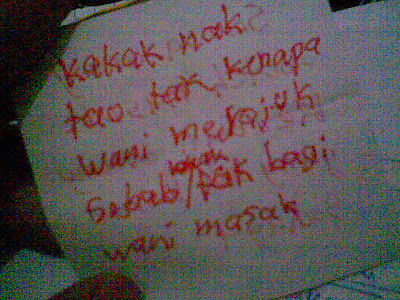 kakak nak
tao tak kenapa
wani merajok
Sebab / tak bagi
wani masak